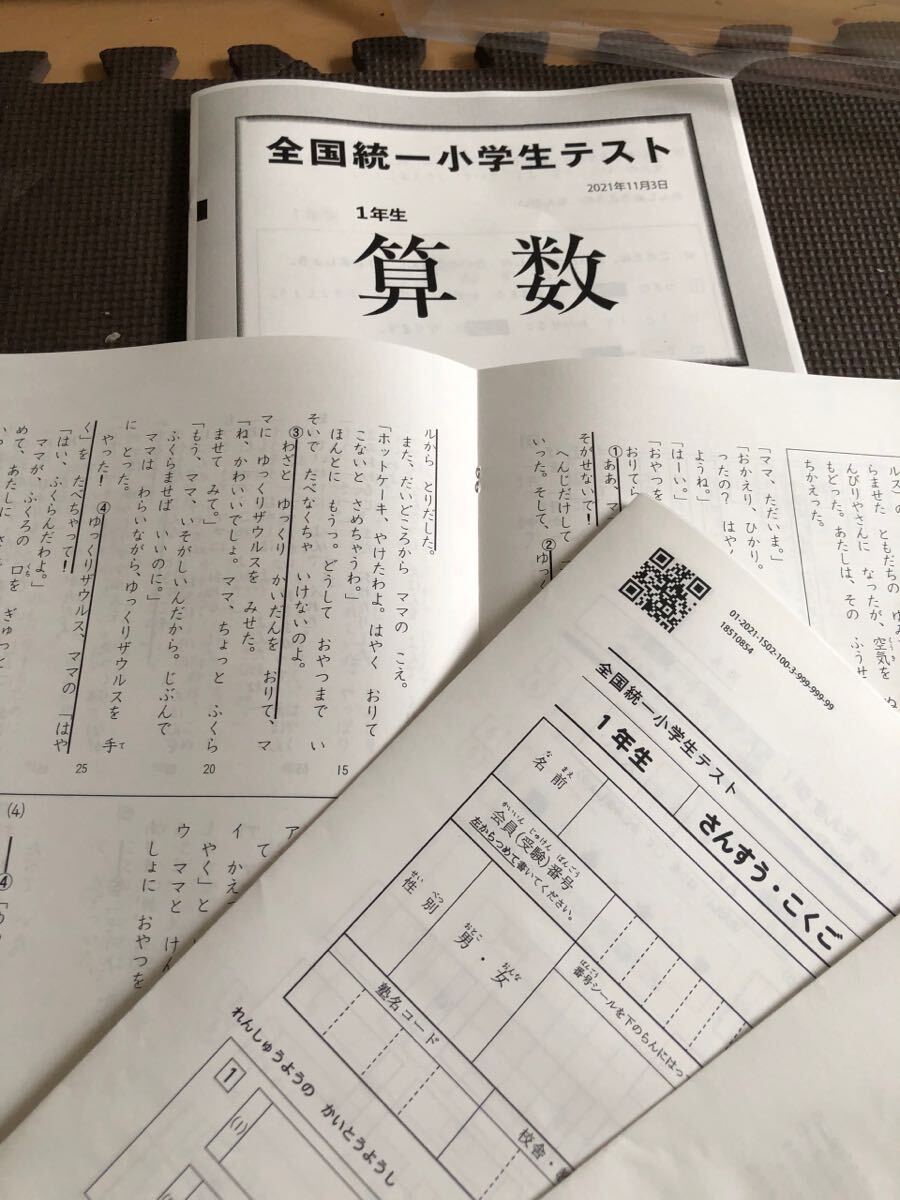 全国統一小学生テスト
2021年11月3日
1年生
算数
ルス)の
らませた ともだちの ゆみ
んびりやさんに なったが、空気を
ちかえった。あたしは、その ふうせ
「ママ、ただいま。」
「おかえり、ひかり。
ったの? はやく
ようね。」
「はーい。」
「おやつを
おりてら
①ああ、マ
そがせないで!
へんじだけして
いった。そして、②ゆっ
ルから とりだした。
また、だいどころから ママの こえ。
「ホットケーキ、やけたわよ。はやく おりて
こないと さめちゃうわ。」
ほんとに もうっ。どうして おやつまで い
そいで たべなくちゃ いけないのよ。
③わざと ゆっくり かいだんを おりて、マ
マに ゆっくりザウルスを みせた。
「ね、かわいいでしょ。ママ、ちょっと ふくら
ませて みて。」
「もう、ママ、いそがしいんだから。じぶんで
ふくらませば いいのに。」
ママは わらいながら、ゆっくりザウルスを 手
て
に とった。
やった! ④ゆっくりザウルス、ママの 「はや
く」を たべちゃって!
「はい、ふくらんだわよ。」
ママが、ふくろの 口を ぎゅっと
くち
めて、あたしに
15
20
25
(4)
て
イ かえ
やく」と
ウ ママと けん
しょに おやつを
④
01-2021-1502-100-3-999-999-99
18510854
全国統一小学生テスト
1年生
さんすう・こくご
なまえ
名前
かいいん じゅけん ばんごう
会員(受験)番号
左からつめて書いてください。
せいべつ
性別
おとこ
男・女
おんな
ばんごう
番号シールを下のらんにはっ
塾名コード
校舎・
れんしゅうようの かいとうようし
1
(1)